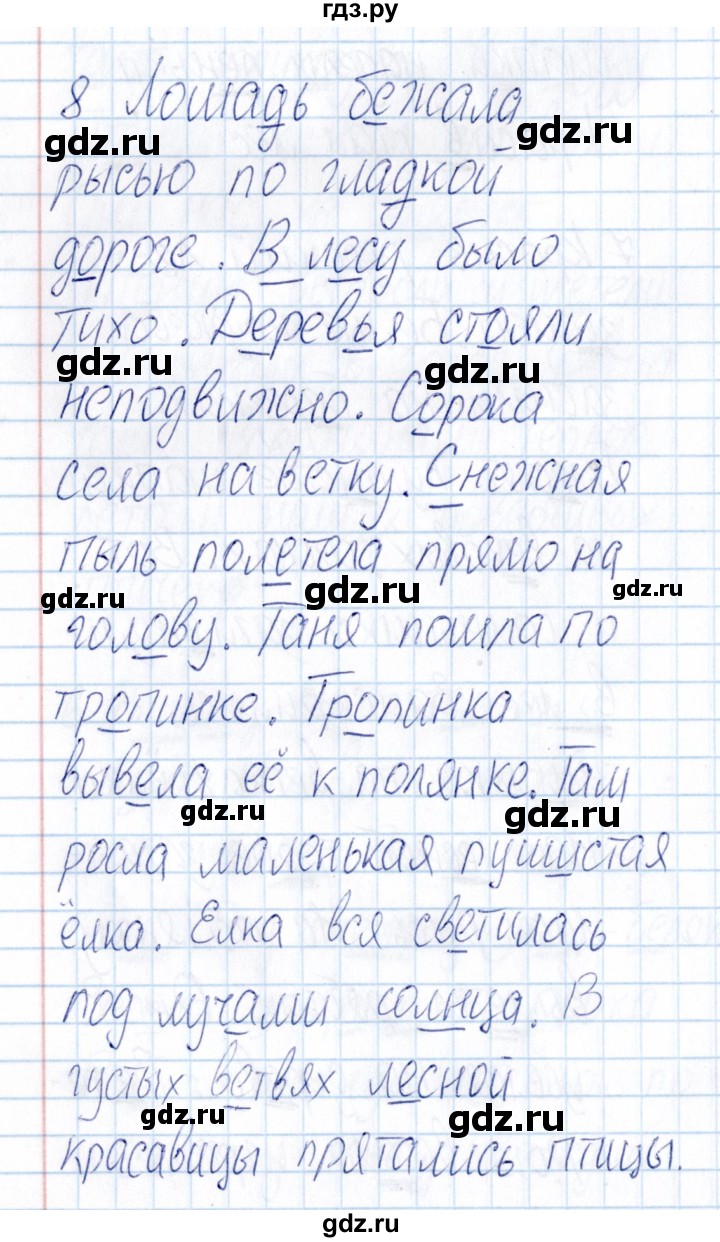 гдз.ру
8 Лошадь бежала
gdz.ru gdz.ru
рысью по гладкой
дороге. В лесу было
тихо. Деревья стояли
gdz.ru gdz.ru
неподвижно. Сорока
села на ветку. Снежная
пыль полетела прямо на
gdz.ru gdz.ru gdz.ru
голову. Таня пошла по
тропинке. Тропинка
вывела её к полянке. Там
gdz.ru gdz.ru
росла маленькая пушистая
ёлка. Елка вся светилась
под лучами солнца. В
густых ветвях лесной
gdz.ru gdz.ru
красавицы прятались птицы.
gdz.ru